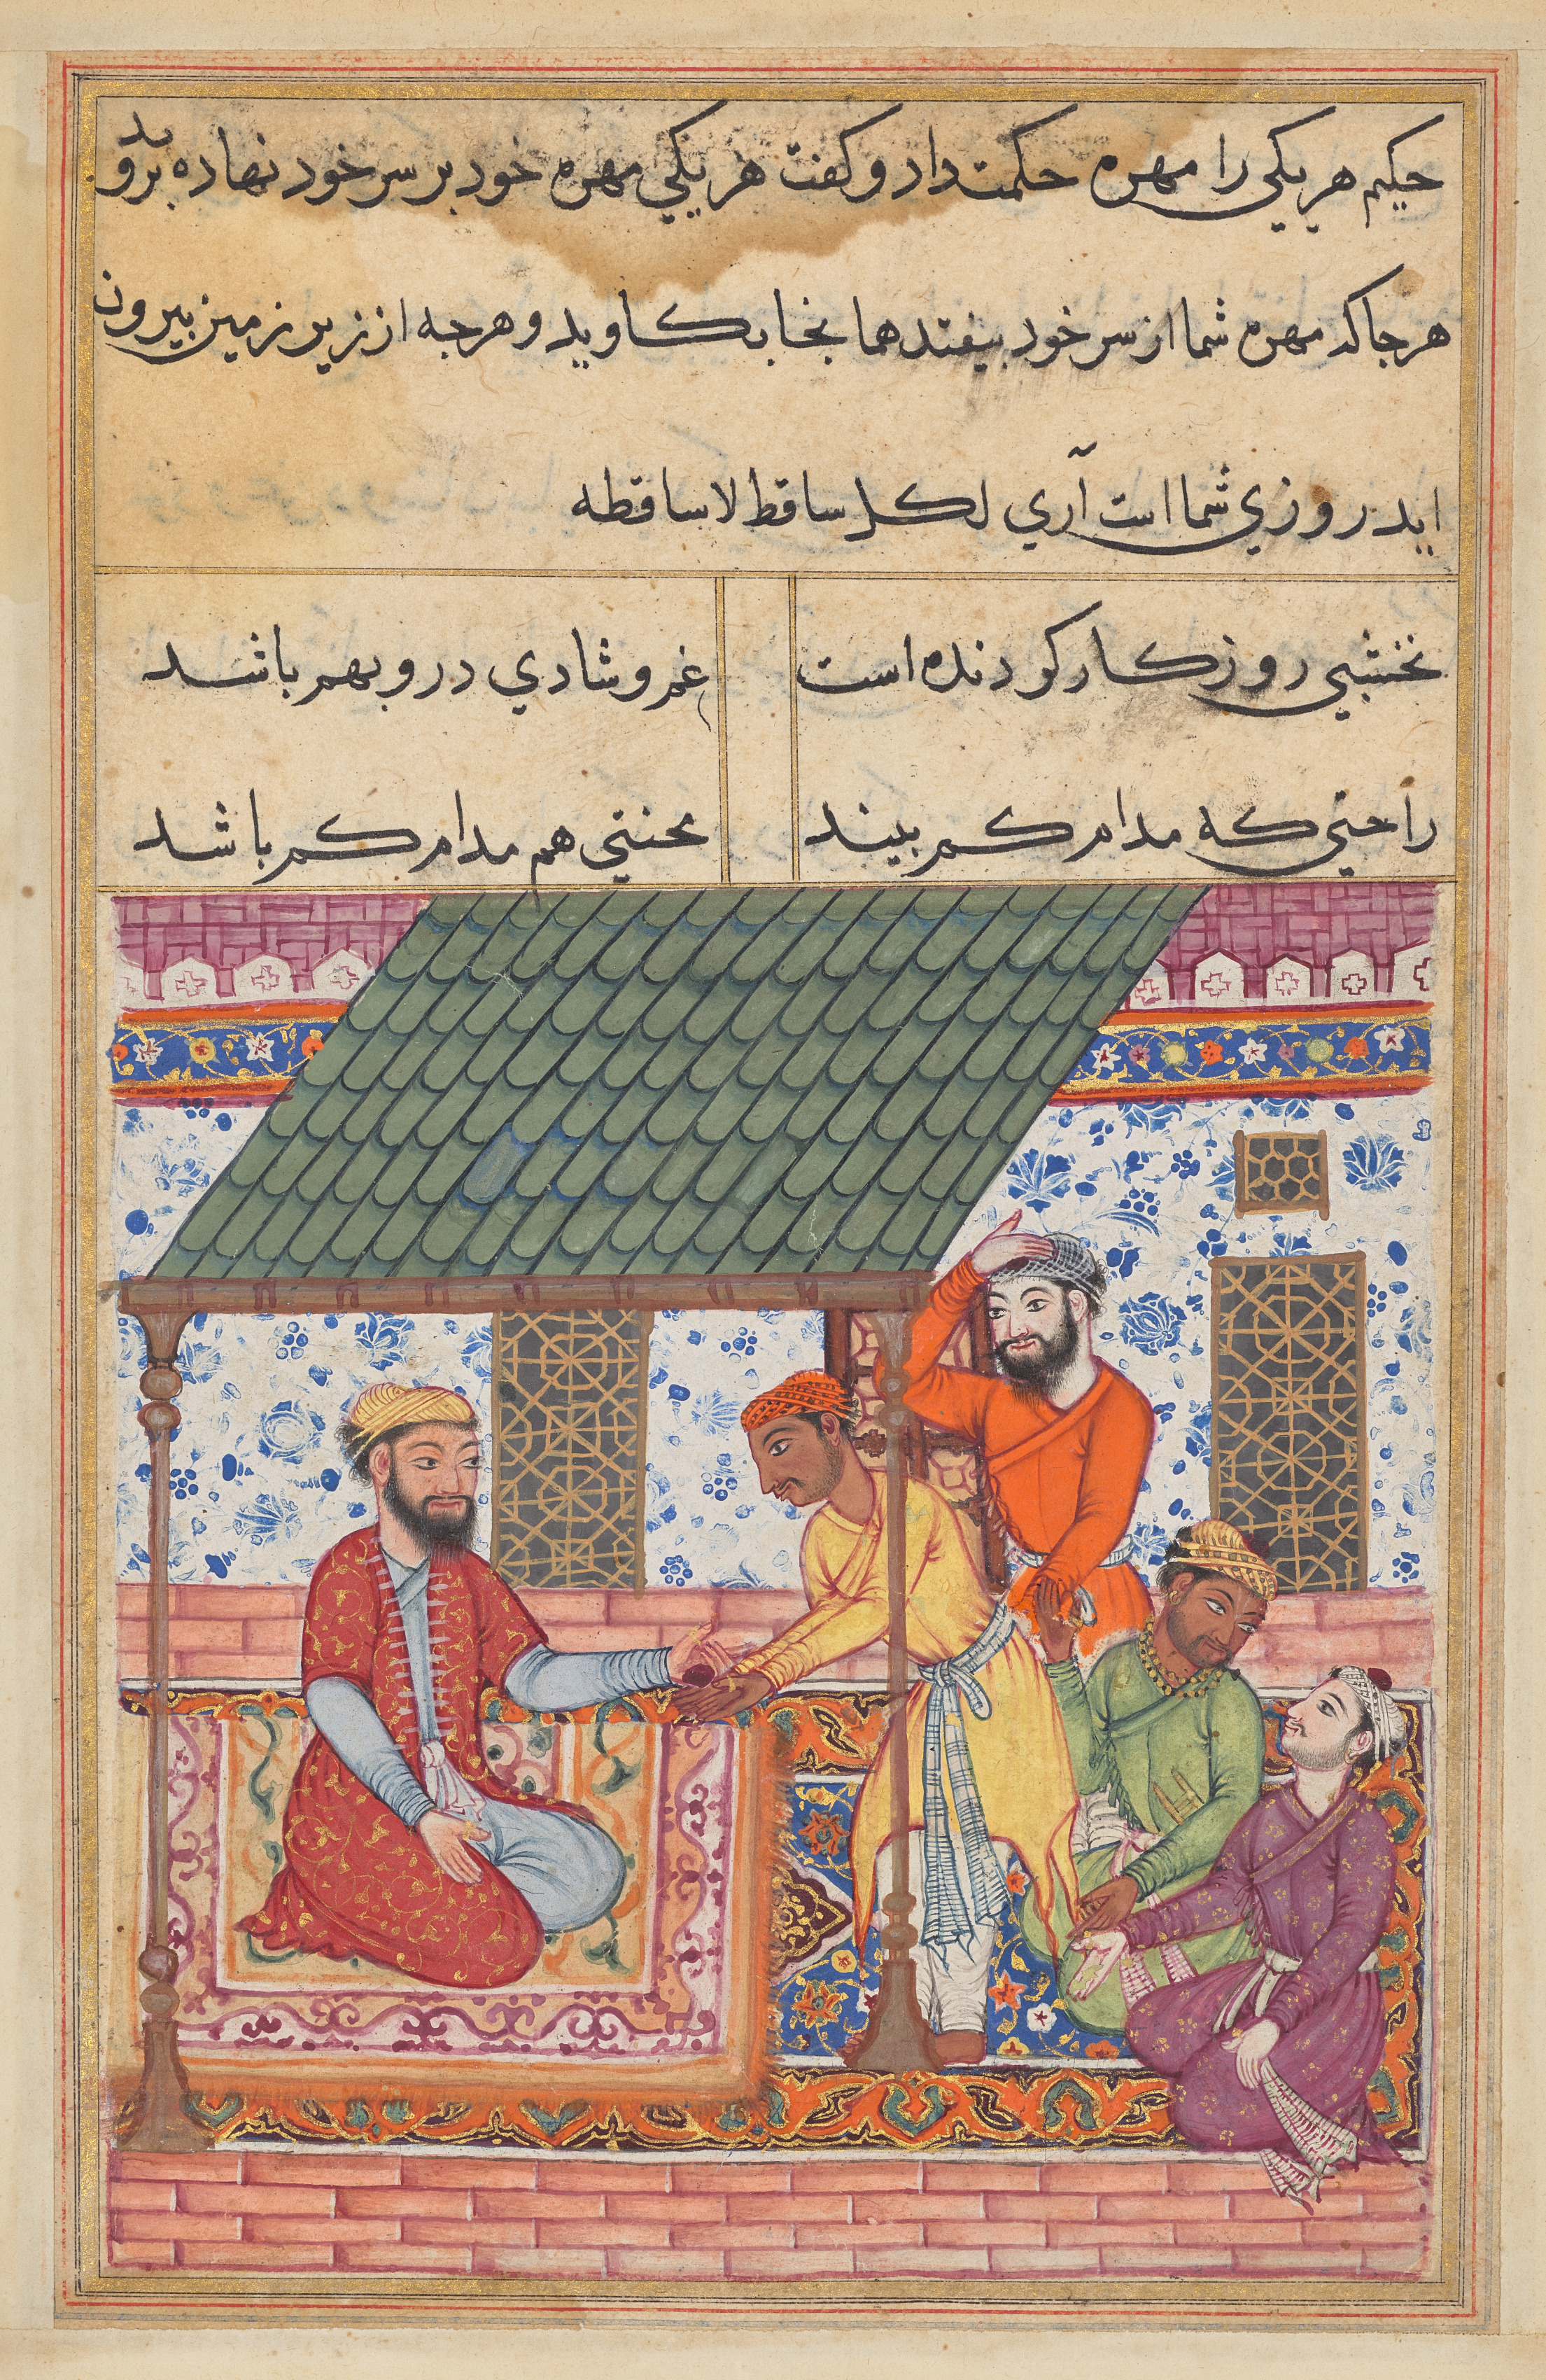 حکیم هر یکی را مهره حکمت داد و کفت هر یکی مهره خود بر سر خود نهاده بروید
هر جا که مهره شما از سر خود بیفتد همانجا بکاوید و هرچه از زیر زمین بیرون
اید روزي شما است آري لکل ساقط لاساقطه
نخشبي روزکار کردنده است
غم و شادي درو بهم باشد
راحتي که مدام کم بیند
محنتي هم مدام کم باشد